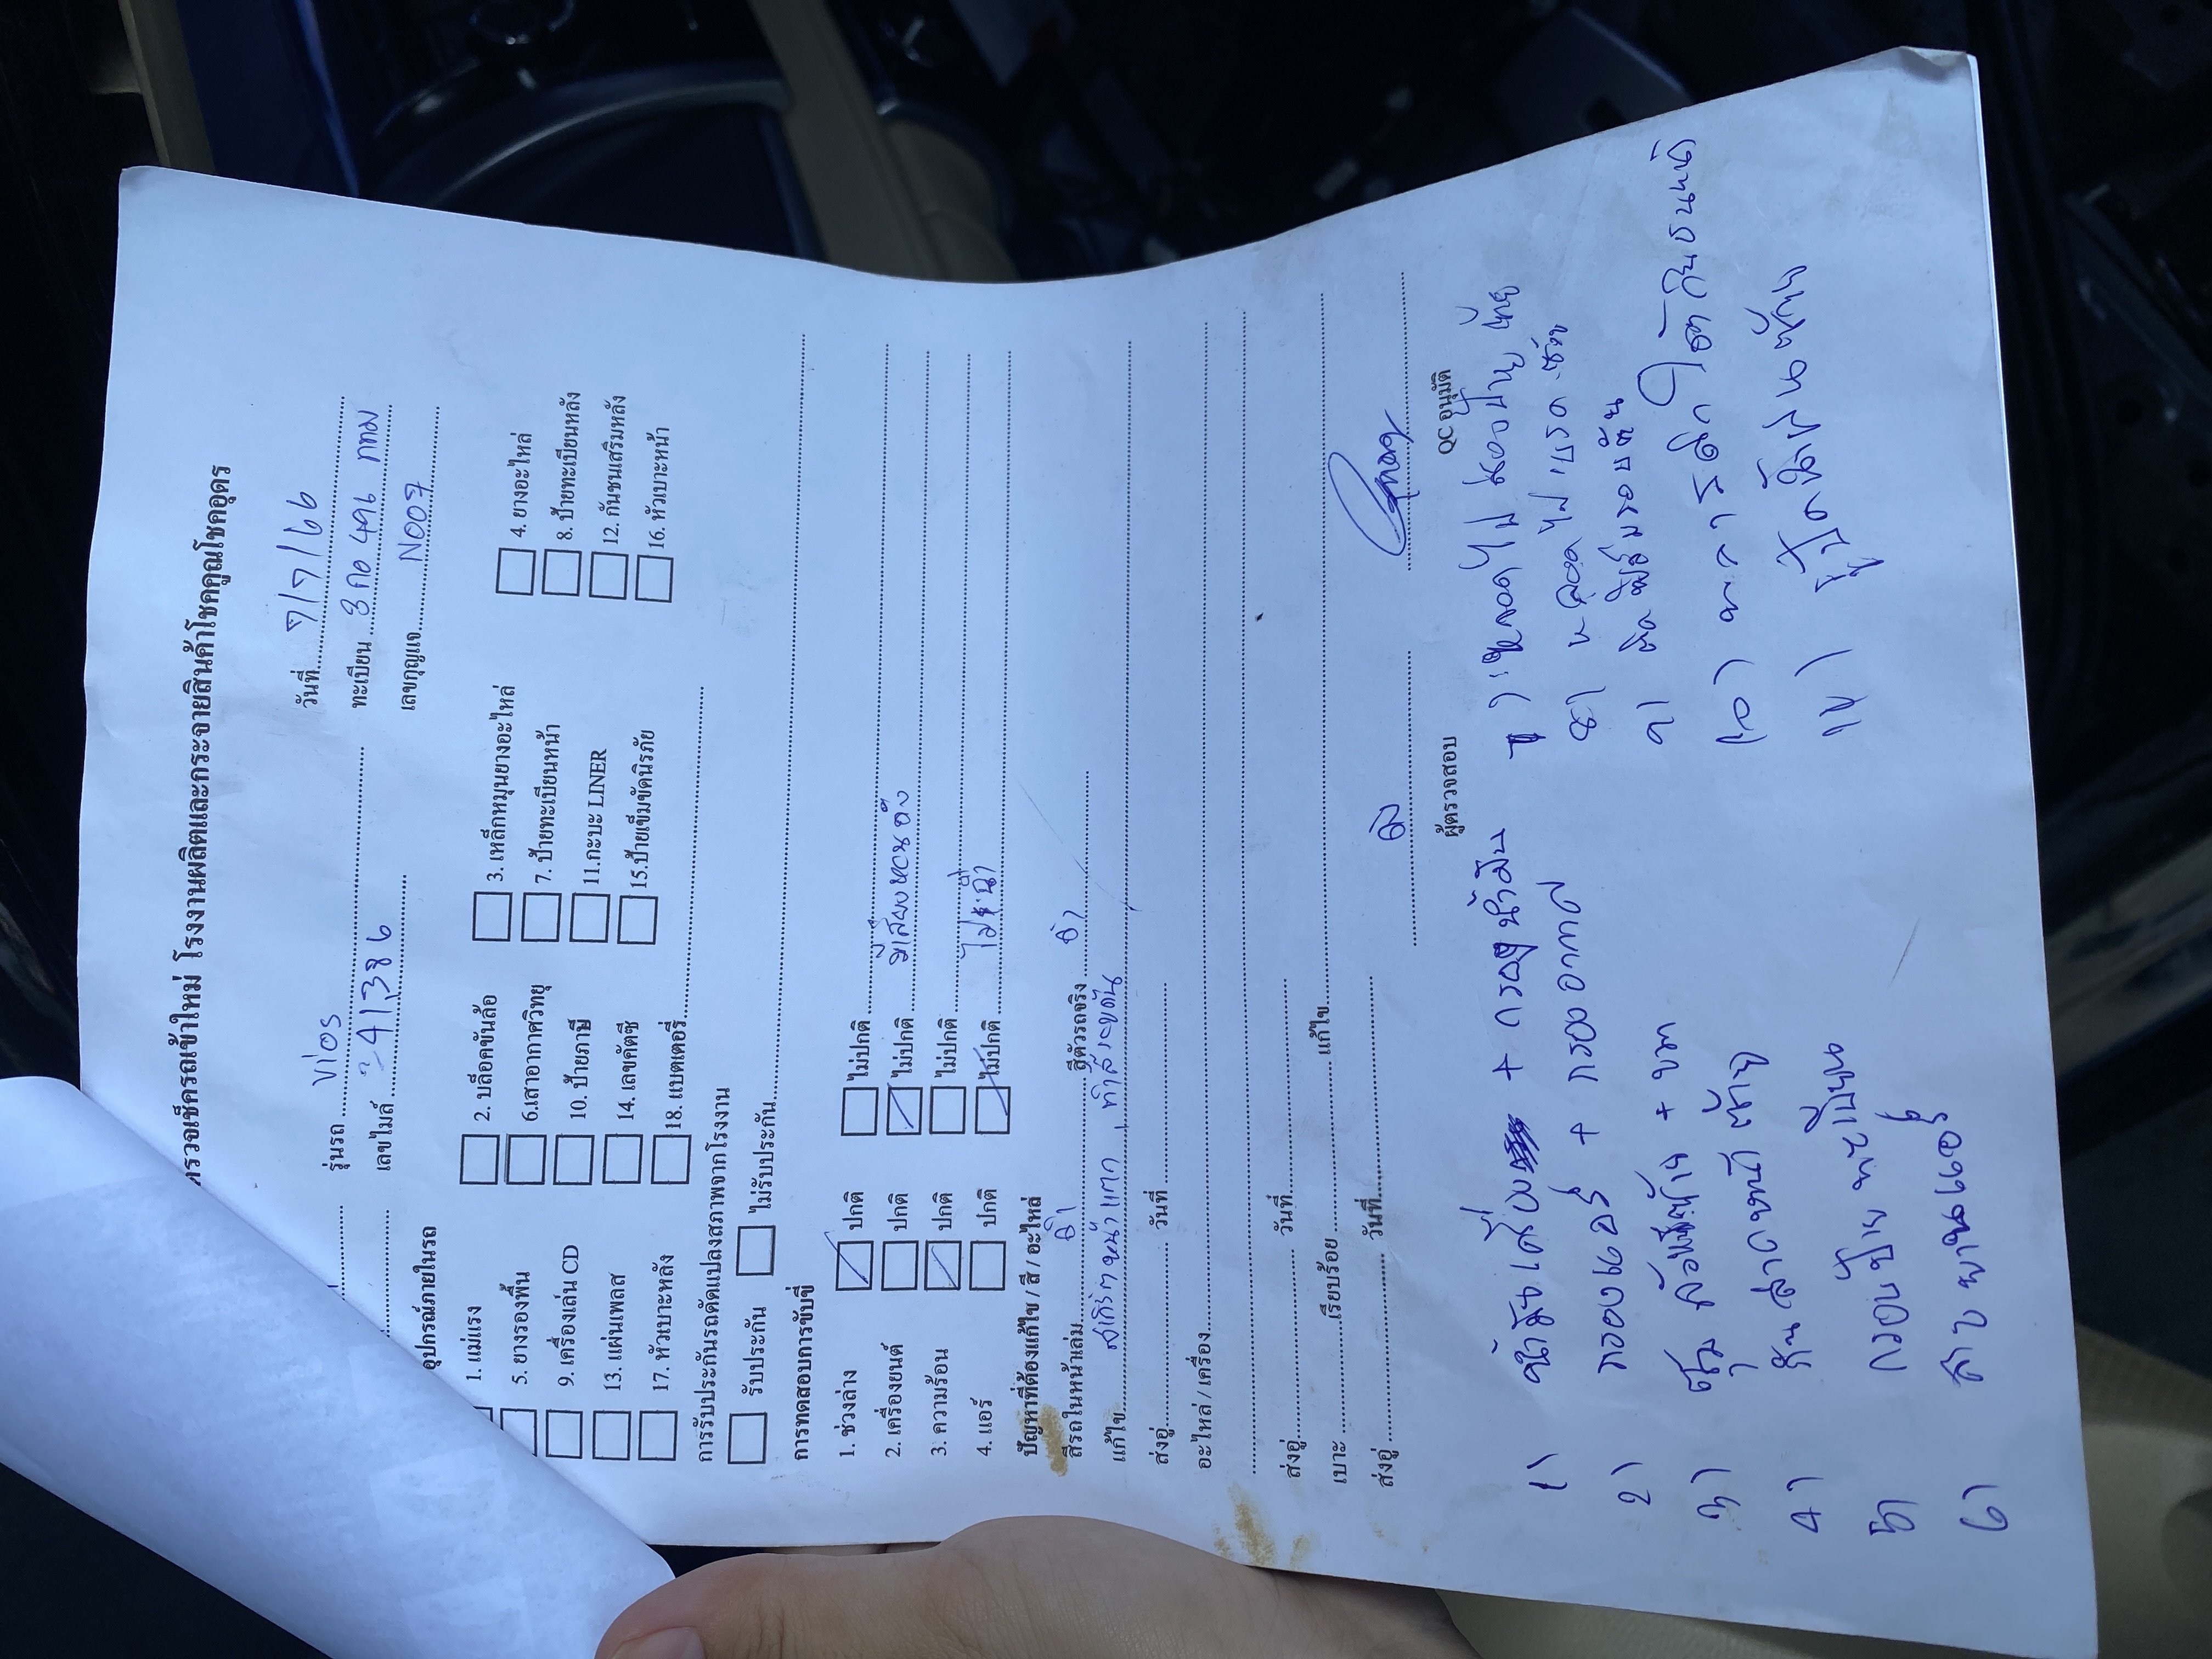 ตรวจเช็ครถเข้าใหม่ โรงงานผลิตและกระจายสินค้าโชคคูณโชคอุดร
รุ่นรถ vios วันที่ 7/7/66
เลขไมล์ 241,386 ทะเบียน 3กอ 496 กทม
เลขกุญแจ N007
อุปกรณ์ภายในรถ
1. แม่แรง 2. บล็อคขันล้อ 3. เหล็กหมุนยางอะไหล่ 4. ยางอะไหล่
5. ยางรองพื้น 6.เสาอากาศวิทยุ 7. ป้ายทะเบียนหน้า 8. ป้ายทะเบียนหลัง
9. เครื่องเล่น CD 10. ป้ายภาษี 11.กะบะ LINER 12. กันชนเสริมหลัง
13. แผ่นเพลส 14. เลขคัตซี 15.ป้ายเข็มขัดนิรภัย 16. หัวเบาะหน้า
17. หัวเบาะหลัง 18. แบตเตอรี่
การรับประกันรถดัดแปลงสภาพจากโรงงาน
รับประกัน ไม่รับประกัน
การทดสอบการขับขี่
1. ช่วงล่าง ปกติ ไม่ปกติ
2. เครื่องยนต์ ปกติ ไม่ปกติ มีเสียงหอนดัง
3. ความร้อน ปกติ ไม่ปกติ
4. แอร์ ปกติ ไม่ปกติ ไม่ฉ่ำ
ปัญหาที่ต้องแก้ไข / สี / อะไหล่
สีรถในหน้าเล่ม ดำ สีตัวรถจริง ดำ
แก้ไข สเกิร์ตหน้าแตก , ทำสีรอบคัน
ส่งอู่ วันที่
อะไหล่ / เครื่อง
ส่งอู่ วันที่
เบาะ เรียบร้อย แก้ไข
ส่งอู่ วันที่
ผู้ตรวจสอบ QC อนุมัติ
1) น้ำมันเครื่อง + กรองน้ำมัน
2) กรองแอร์ + กรองอากาศ
3)
4)
5) กรอบป้ายทะเบียน
6) สายพานแอร์
7)
8) หลอดไฟเบรค
9) ติดฟิล์มรอบคัน
10) กันชนหน้า
11)